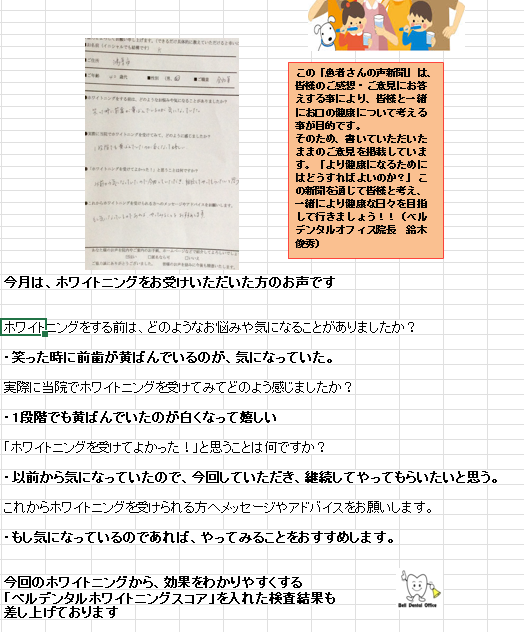 この「患者さんの声新聞」は、
皆様のご感想・ご意見にお答
えする事により、皆様と一緒
にお口の健康について考える
事が目的です。
そのため、書いていただいた
ままのご意見を掲載していま
す。「より健康になるためにに
はどうすればよいのか？」こ
の新聞を通じて皆様と考え、
一緒により健康な日々を目指
して行きましょう！！（ベル
デンタルオフィス院長　鈴木
俊秀）
今月は、ホワイトニングをお受けいただいた方のお声です
ホワイトニングをする前は、どのようなお悩みや気になることがありましたか？
・笑った時に前歯が黄ばんでいるのが、気になっていた。
実際に当院でホワイトニングを受けてみてどのよう感じましたか？
・1段階でも黄ばんでいたのが白くなって嬉しい
「ホワイトニングを受けてよかった！」と思うことは何ですか？
・以前から気になっていたので、今回していただき、継続してやってもらいたいと思う。
これからホワイトニングを受けられる方へメッセージやアドバイスをお願いします。
・もし気になっているのであれば、やってみることをおすすめします。
今回のホワイトニングから、効果をわかりやすくする
「ベルデンタルホワイトニングスコア」を入れた検査結果も
差し上げております
Bell Dental Office